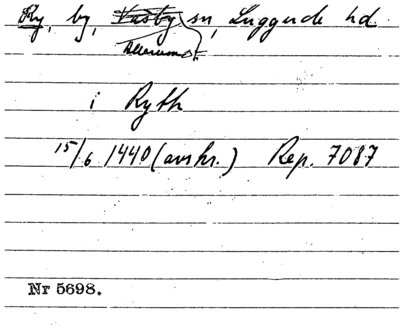 Ry, by, Väsby sn, Luggude hd.
Allerums
i Ryth
15/6 1440 (avskr.) Rep. 7087
Nr 5698.